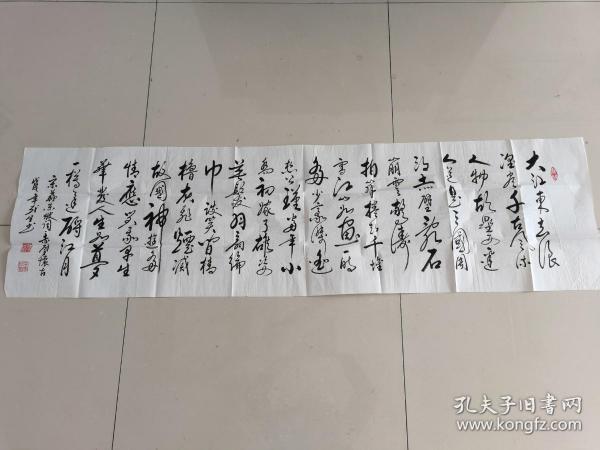 大江东去浪
淘尽千古风流
人物故垒西边
人道是三国周
郎赤壁乱石
崩云惊涛
拍岸卷起千堆
雪江山如画一时
多少豪杰遥
想公瑾当年小
乔初嫁了雄姿
英发羽扇纶
巾谈笑间樯
橹灰飞烟灭
故国神游多
情应笑我早生
华发人生如梦
一樽还酹江月
宋苏东坡词赤壁怀古
孔夫子旧书网
www.kongfz.com